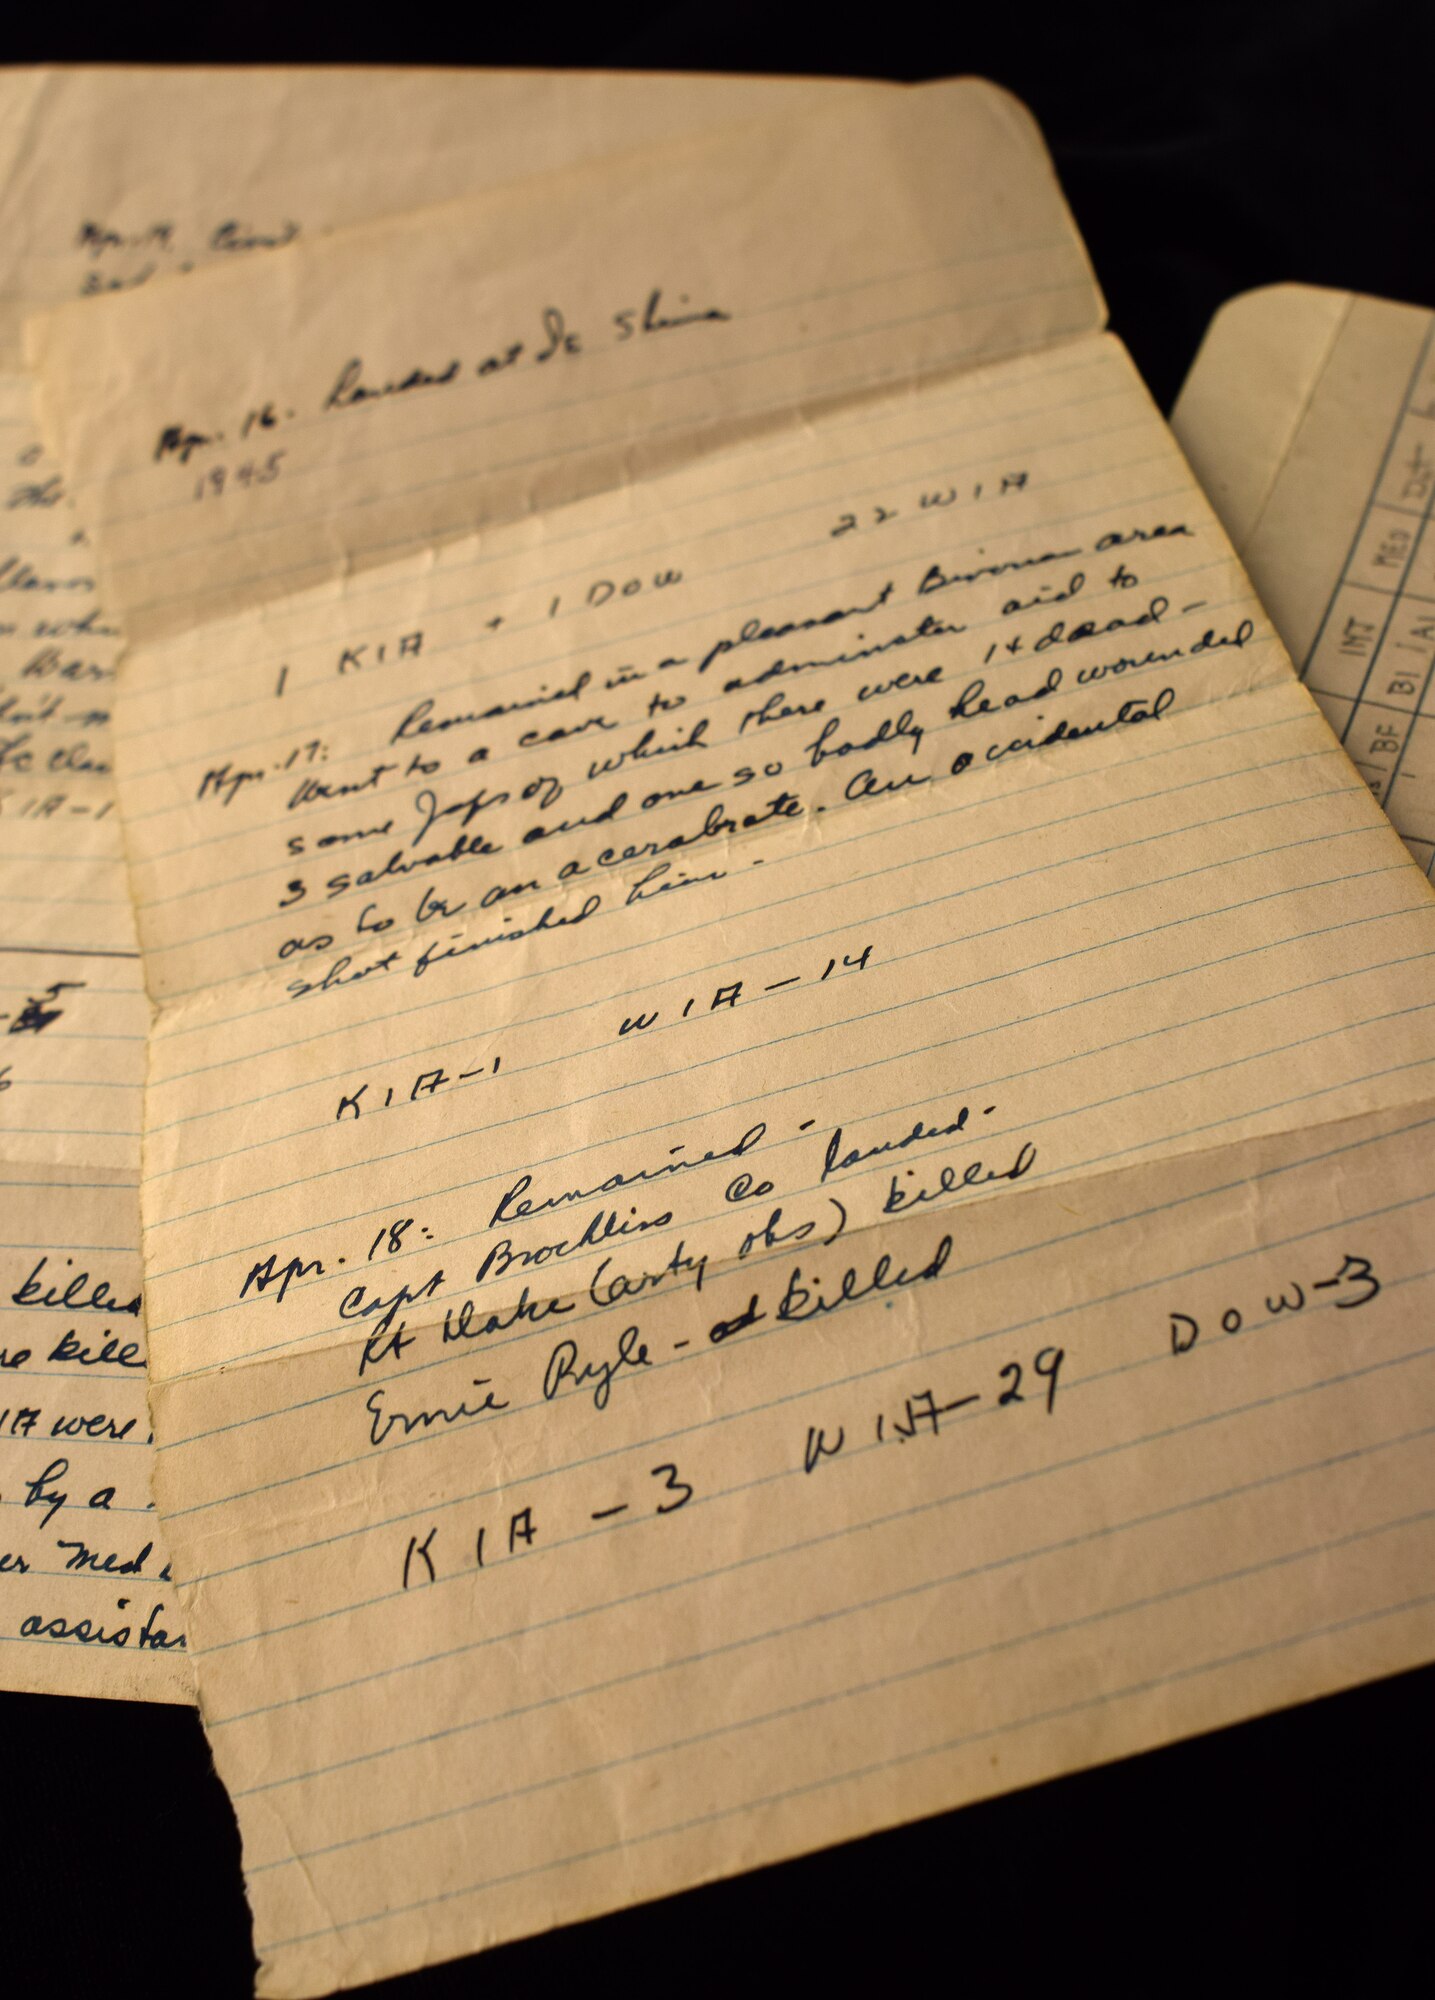 Apr. 16. Landed at Ie Shima
1945
1 KIA + 1 DOW 22 WIA
Apr. 17: Remained in a pleasant Bivouac area
Went to a cave to adminster aid to
some Japs of which there were 14 dead -
3 salvable and one so badly head wounded
as to be an acerabrate. An accidental
shot finished him -
KIA-1 WIA-14
Apr. 18: Remained -
Capt Co landed -
Lt (arty obs) killed
Ernie Pyle - killed
KIA - 3 WIA - 29 DOW-3
killed
kill
were
by a
Med
INT MED
BF BI